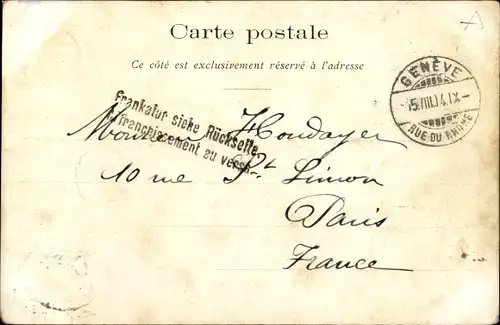 Carte postale
Ce côté est exclusivement réservé à l'adresse
GENÈVE
RUE DU RHÔNE
Frankatur siehe Rückseite
franchissement au verso
Houdayer
10 rue St Simon
Paris
France